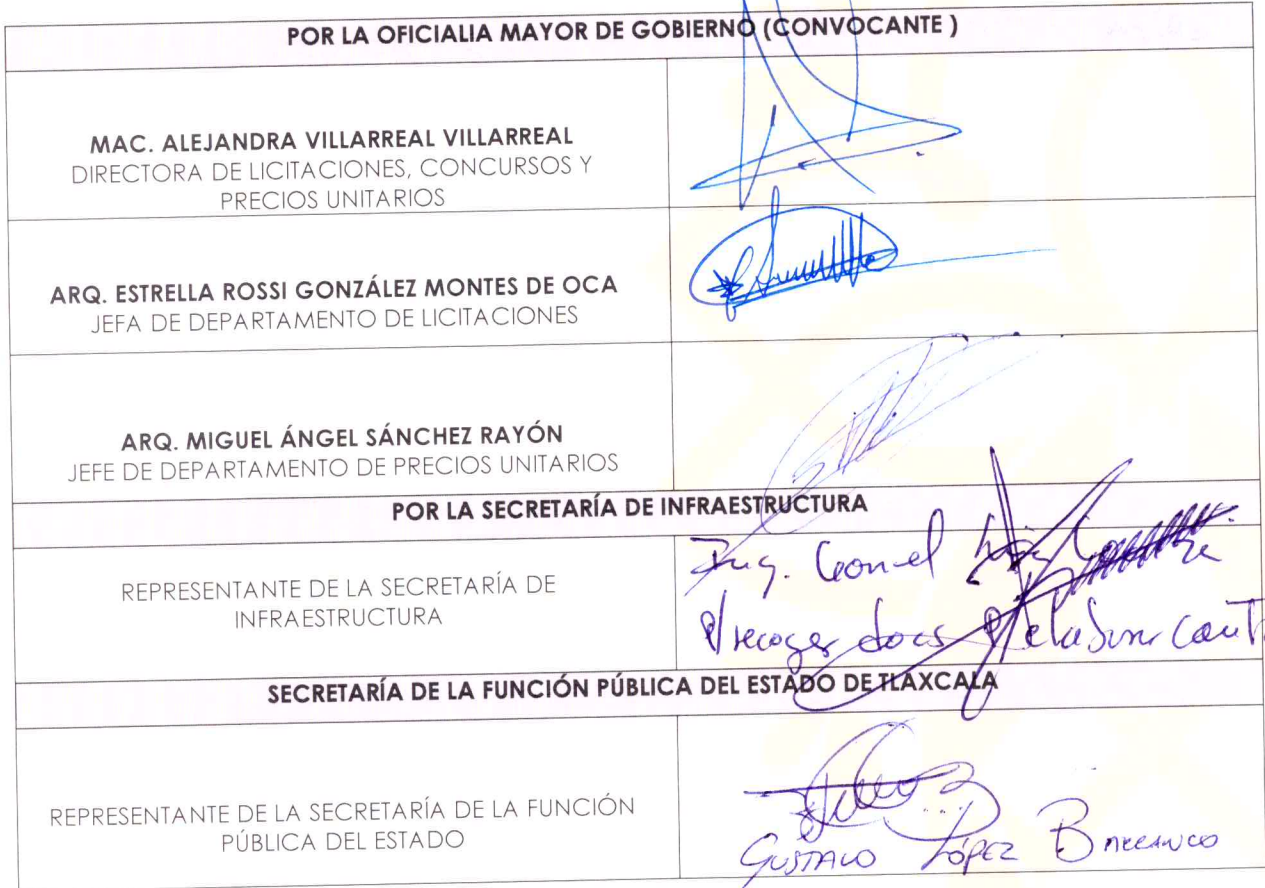 POR LA OFICIALIA MAYOR DE GOBIERNO (CONVOCANTE )
MAC. ALEJANDRA VILLARREAL VILLARREAL
DIRECTORA DE LICITACIONES, CONCURSOS Y
PRECIOS UNITARIOS
ARQ. ESTRELLA ROSSI GONZÁLEZ MONTES DE OCA
JEFA DE DEPARTAMENTO DE LICITACIONES
ARQ. MIGUEL ÁNGEL SÁNCHEZ RAYÓN
JEFE DE DEPARTAMENTO DE PRECIOS UNITARIOS
POR LA SECRETARÍA DE INFRAESTRUCTURA
REPRESENTANTE DE LA SECRETARÍA DE
INFRAESTRUCTURA
Ing.
recoger docs
SECRETARÍA DE LA FUNCIÓN PÚBLICA DEL ESTADO DE TLAXCALA
REPRESENTANTE DE LA SECRETARÍA DE LA FUNCIÓN
PÚBLICA DEL ESTADO
GUSTAVO LÓPEZ